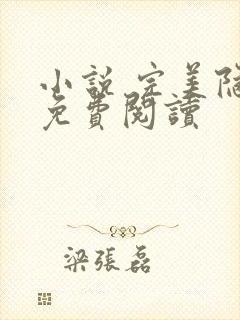 小說完美
免費閱讀
梁張磊